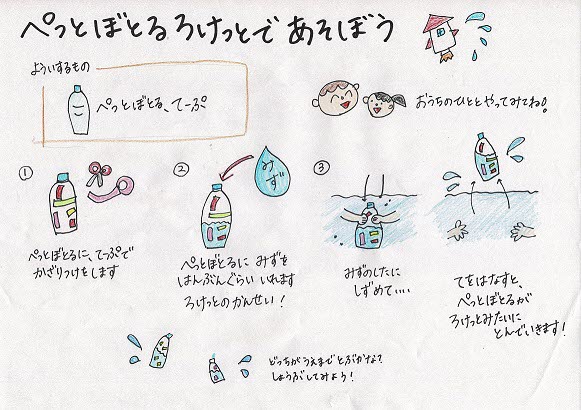 ぺっとぼとるろけっとであそぼう
よういするもの
ぺっとぼとる、てーぷ
おうちのひととやってみてね!
①
ぺっとぼとるに、てーぷで
かざりつけをします
②
みず
ぺっとぼとるに みずを
はんぶんぐらい いれます
ろけっとのかんせい!
③
みずのしたに
しずめて‥‥
てをはなすと、
ぺっとぼとるが
ろけっとみたいに
とんでいきます!
どっちがうえまでとぶかな?
しょうぶしてみよう!